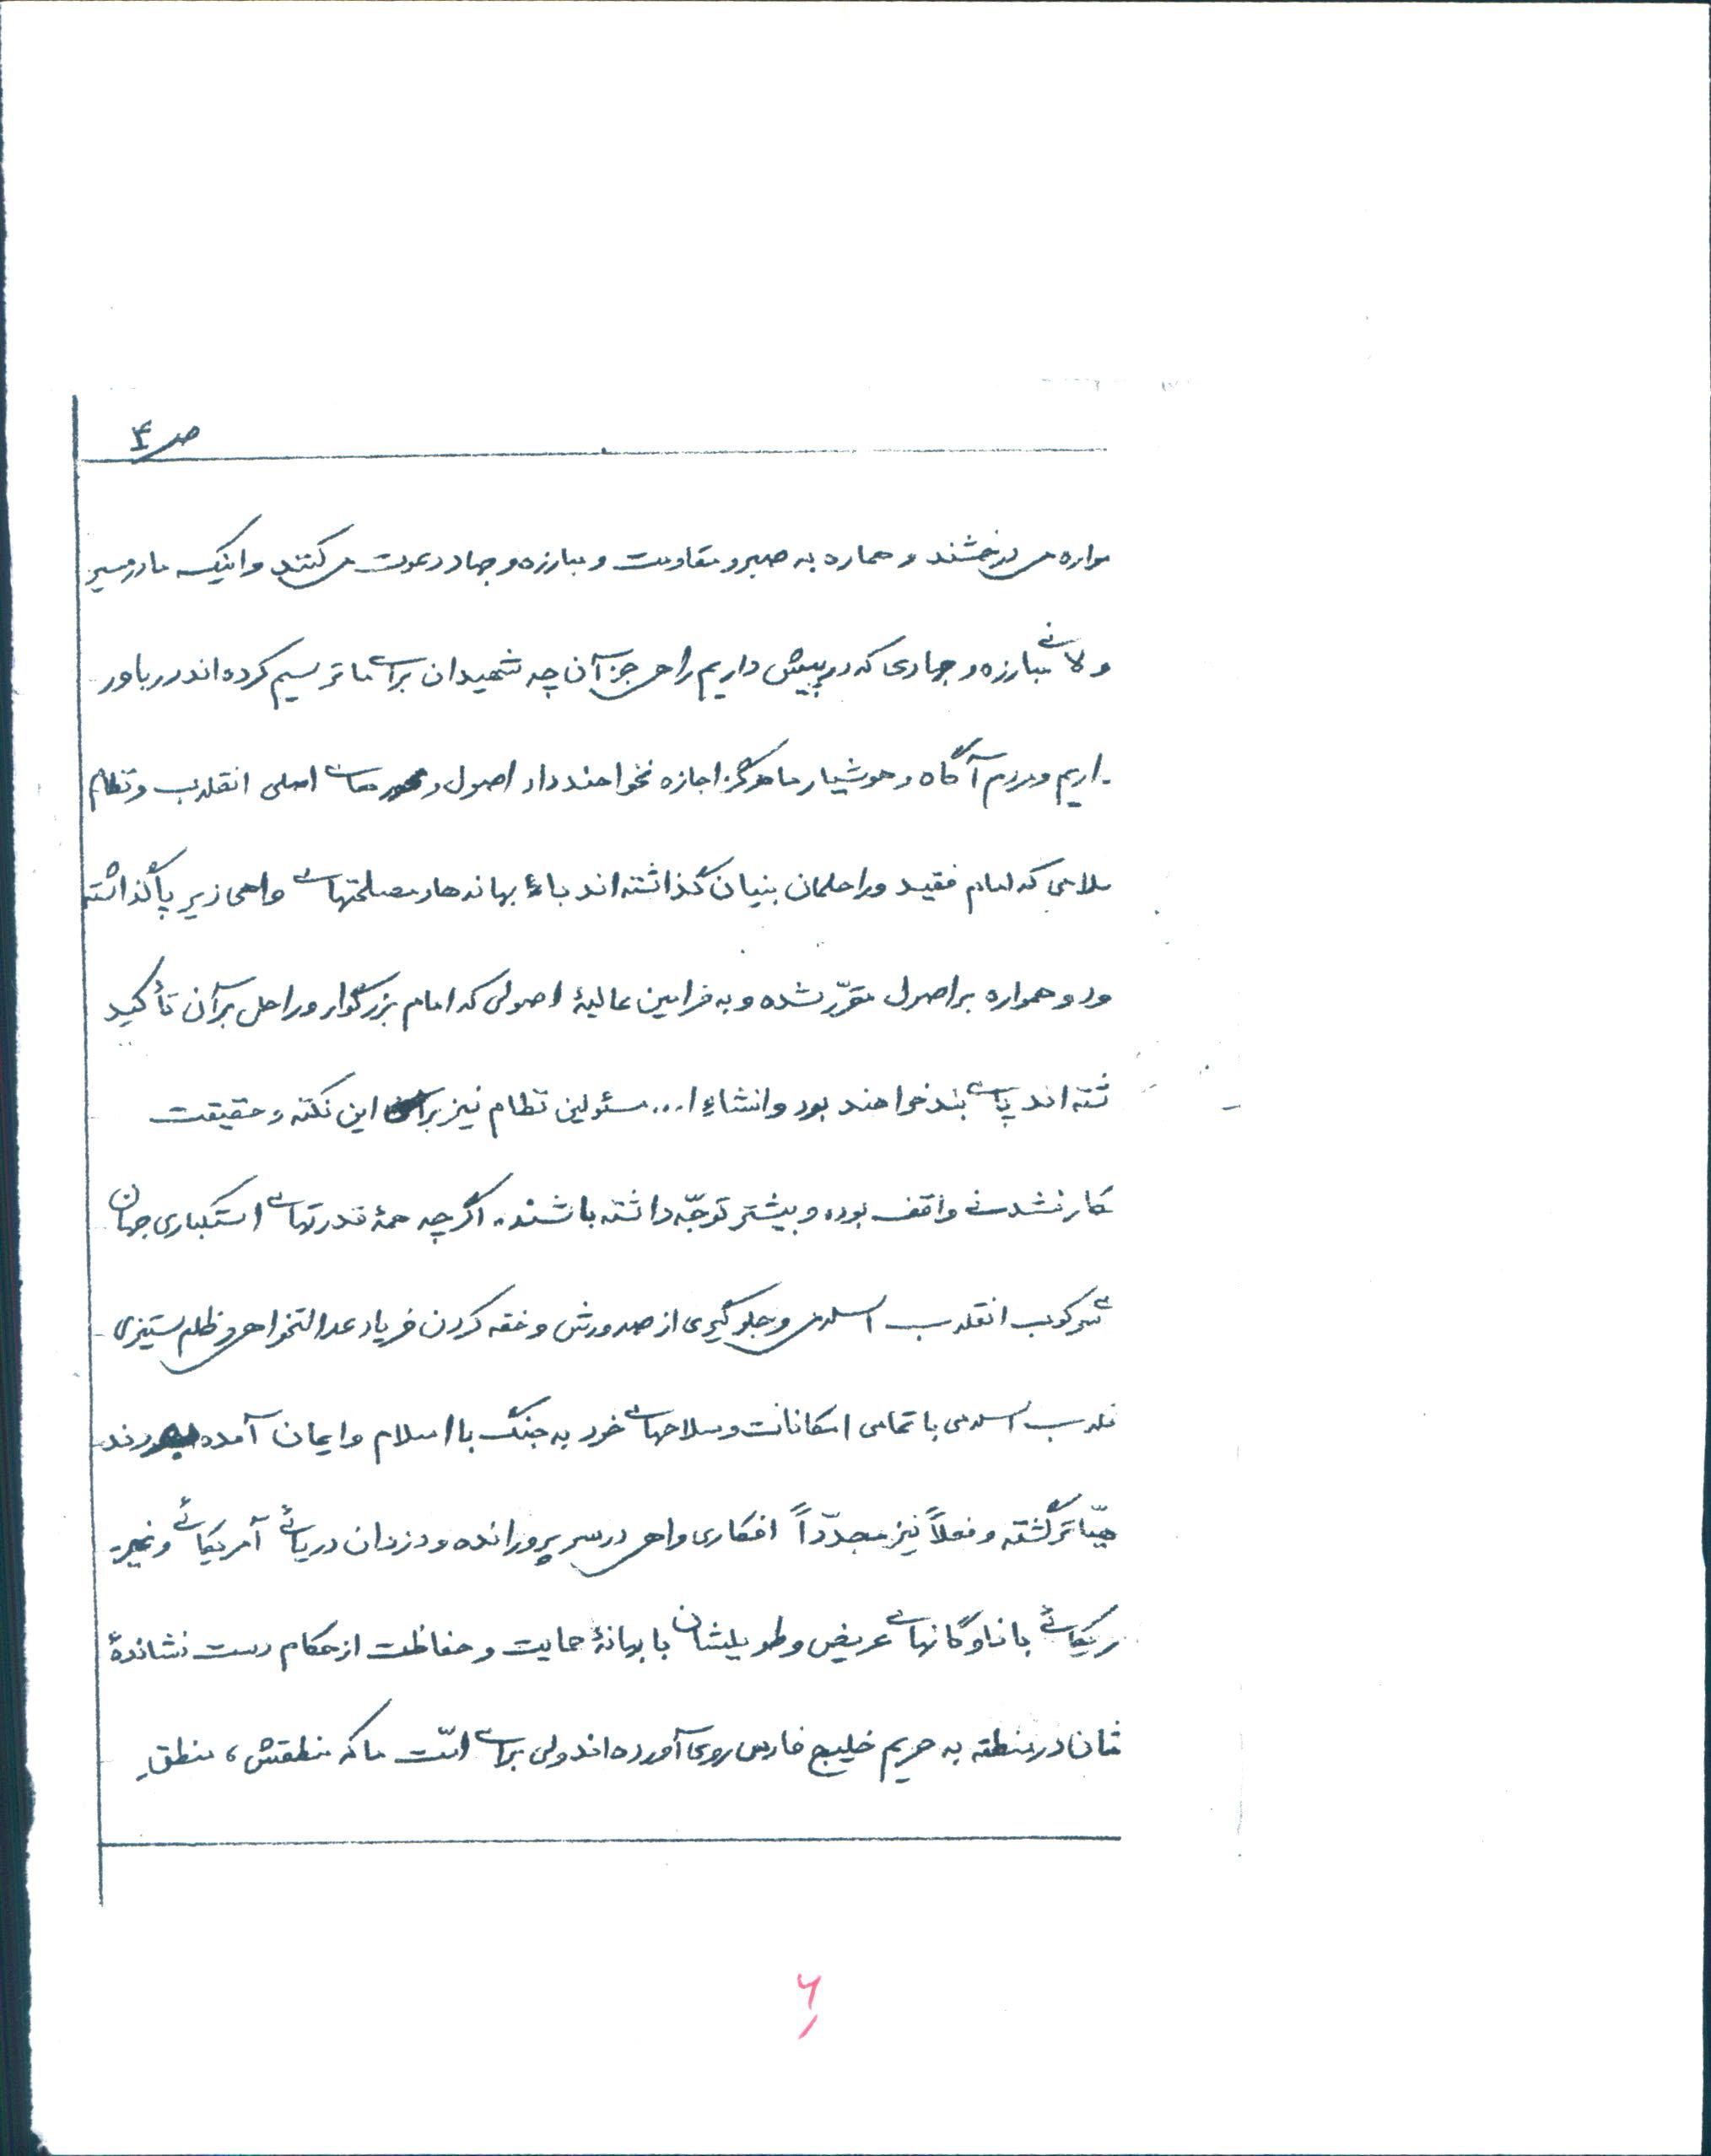 ص ۴
مواره می درخشند و هماره به صبر و مقاومت و مبارزه و جهاد دعوت می کنند و اینک ما در مسیر
ولانی مبارزه و جهادی که در پیش داریم راهی جز آن چه شهیدان برای ما ترسیم کرده اند در باور
داریم و مردم آگاه و هوشیار ما هرگز اجازه نخواهند داد اصول و اصلی انقلاب و نظام
سلامی که امام فقید و راحلمان بنیان گذاشته اند با بهانه ها و مصلحتهای واهی زیر پا گذاشته
ود و همواره بر اصول مقرّر شده و به فرامین عالیهٔ اصولی که امام بزرگوار و راحل بر آن تأکید
شته اند پای بند خواهند بود و انشاءا... مسئولین نظام نیز بر این نکته و حقیقت
کار نشدنی واقف بوده و بیشتر توجّه داشته باشند. اگر چه همهٔ قدرتهای استکباری جهان
سرکوب انقلاب اسلامی و جلوگیری از صدورش و خفه کردن فریاد عدالتخواهی و ظلم ستیزی
قلاب اسلامی با تمامی امکانات و سلاحهای خود به جنگ با اسلام و ایمان آمده بودند
مهیّاتر گشته و فعلاً نیز مجدّداً افکاری واهی در سر پرورانده و دزدان دریائی آمریکائی و غیر
ریکائی با ناوگانهای عریض و طویلشان با بهانهٔ حمایت و حفاظت از حکام دست نشاندهٔ
شان در منطقه به حریم خلیج فارس روی آورده اند ولی برای امّت ما که منطقش، منطقِ
۶